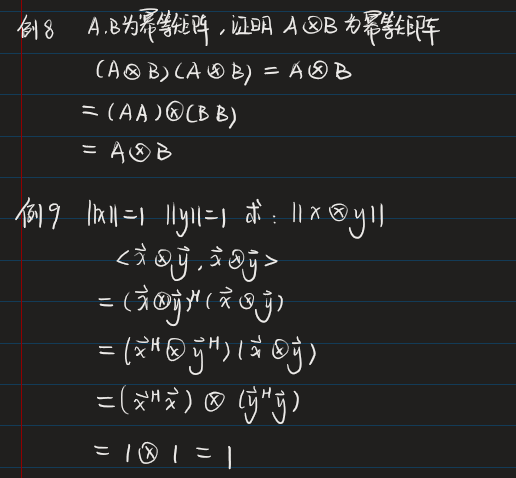 例8 A.B为幂等矩阵,证明 A⊗B 为幂等矩阵
(A⊗B)(A⊗B) = A⊗B
= (AA)⊗(BB)
= A⊗B
例9 ||x||=1 ||y||=1 求: ||x⊗y||
<x⃗⊗y⃗, x⃗⊗y⃗>
= (x⃗⊗y⃗)ᴴ(x⃗⊗y⃗)
= (x⃗ᴴ⊗y⃗ᴴ)(x⃗⊗y⃗)
= (x⃗ᴴx⃗)⊗(y⃗ᴴy⃗)
= 1⊗1 = 1